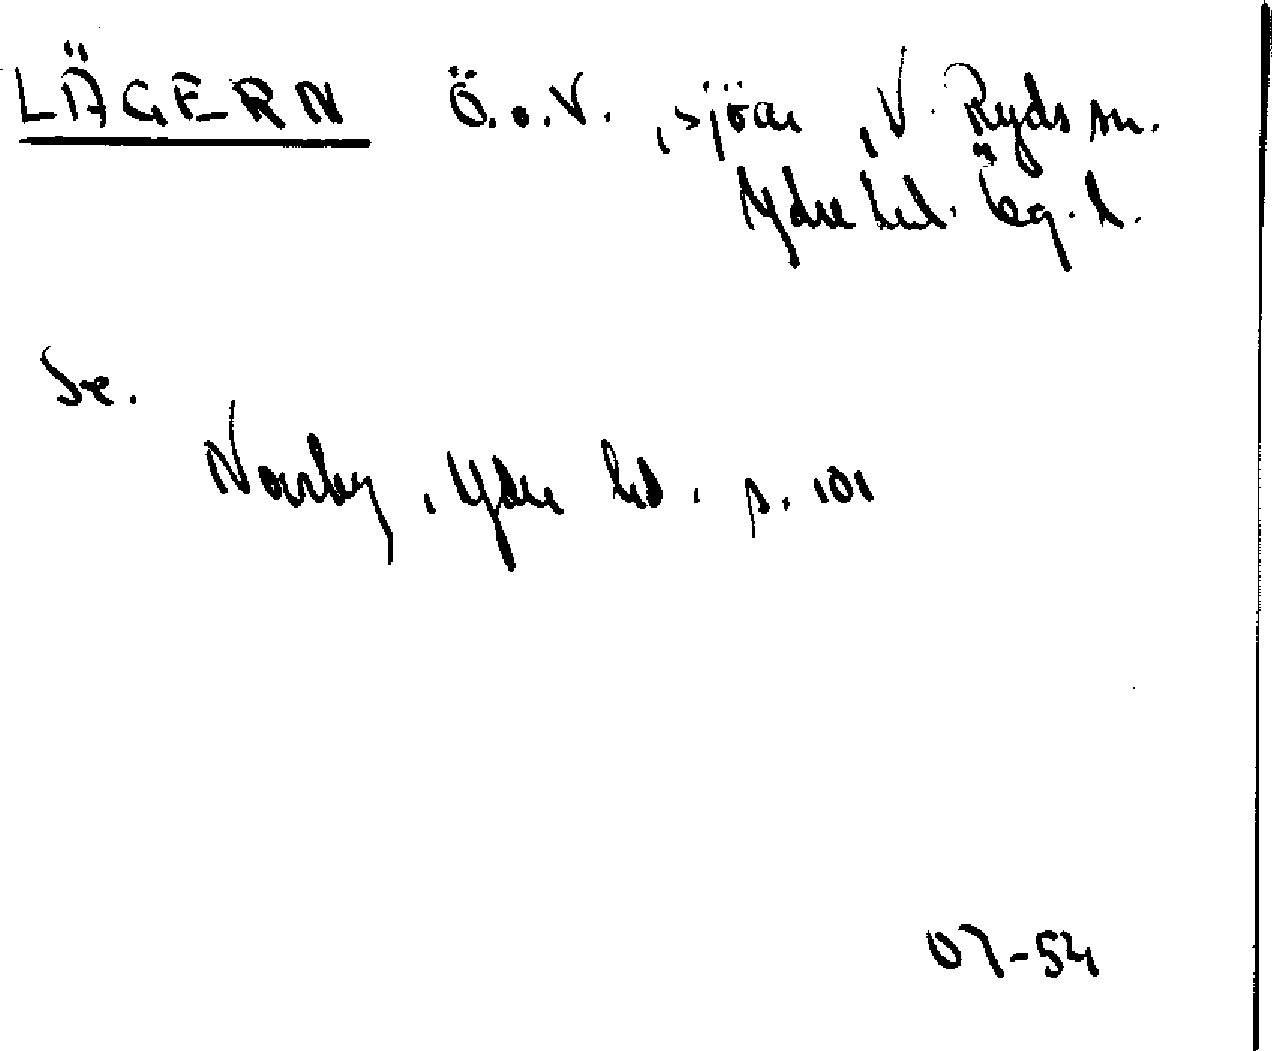 LÄGERN Ö.o.V. , sjöar , V. Ryds sn.
Ydre hd. Ög. l.
Se.
Norrby, Ydre hd. s. 101
07-54